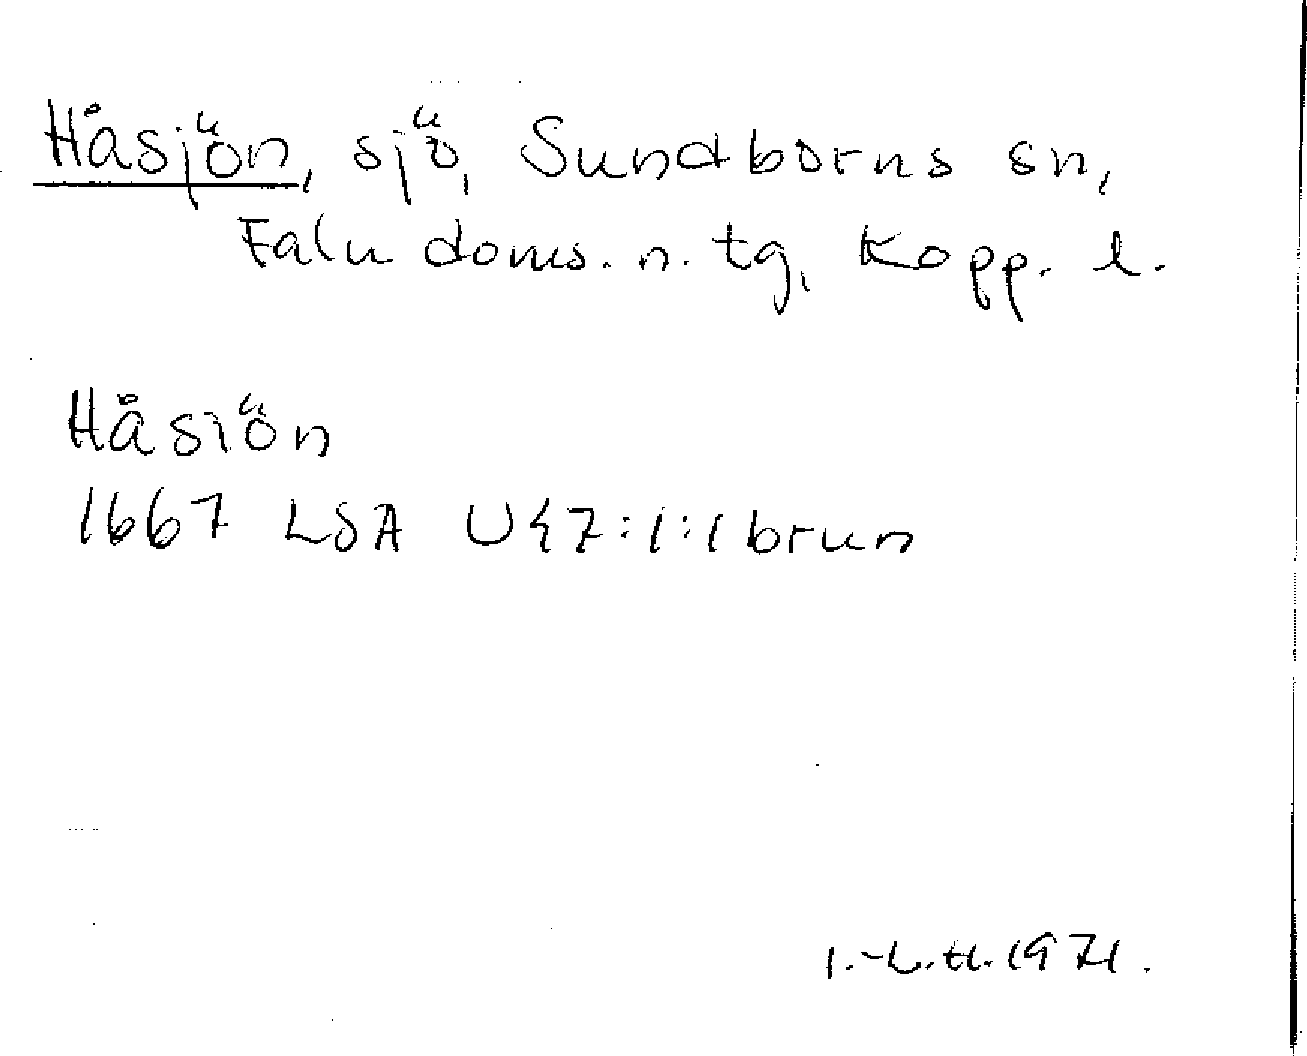 Håsjön, sjö, Sundborns sn,
Falu doms. n. tg, Kopp. l.
Håsiön
1667 LSA U47:1:1 brun
I.-L.H. 1971.